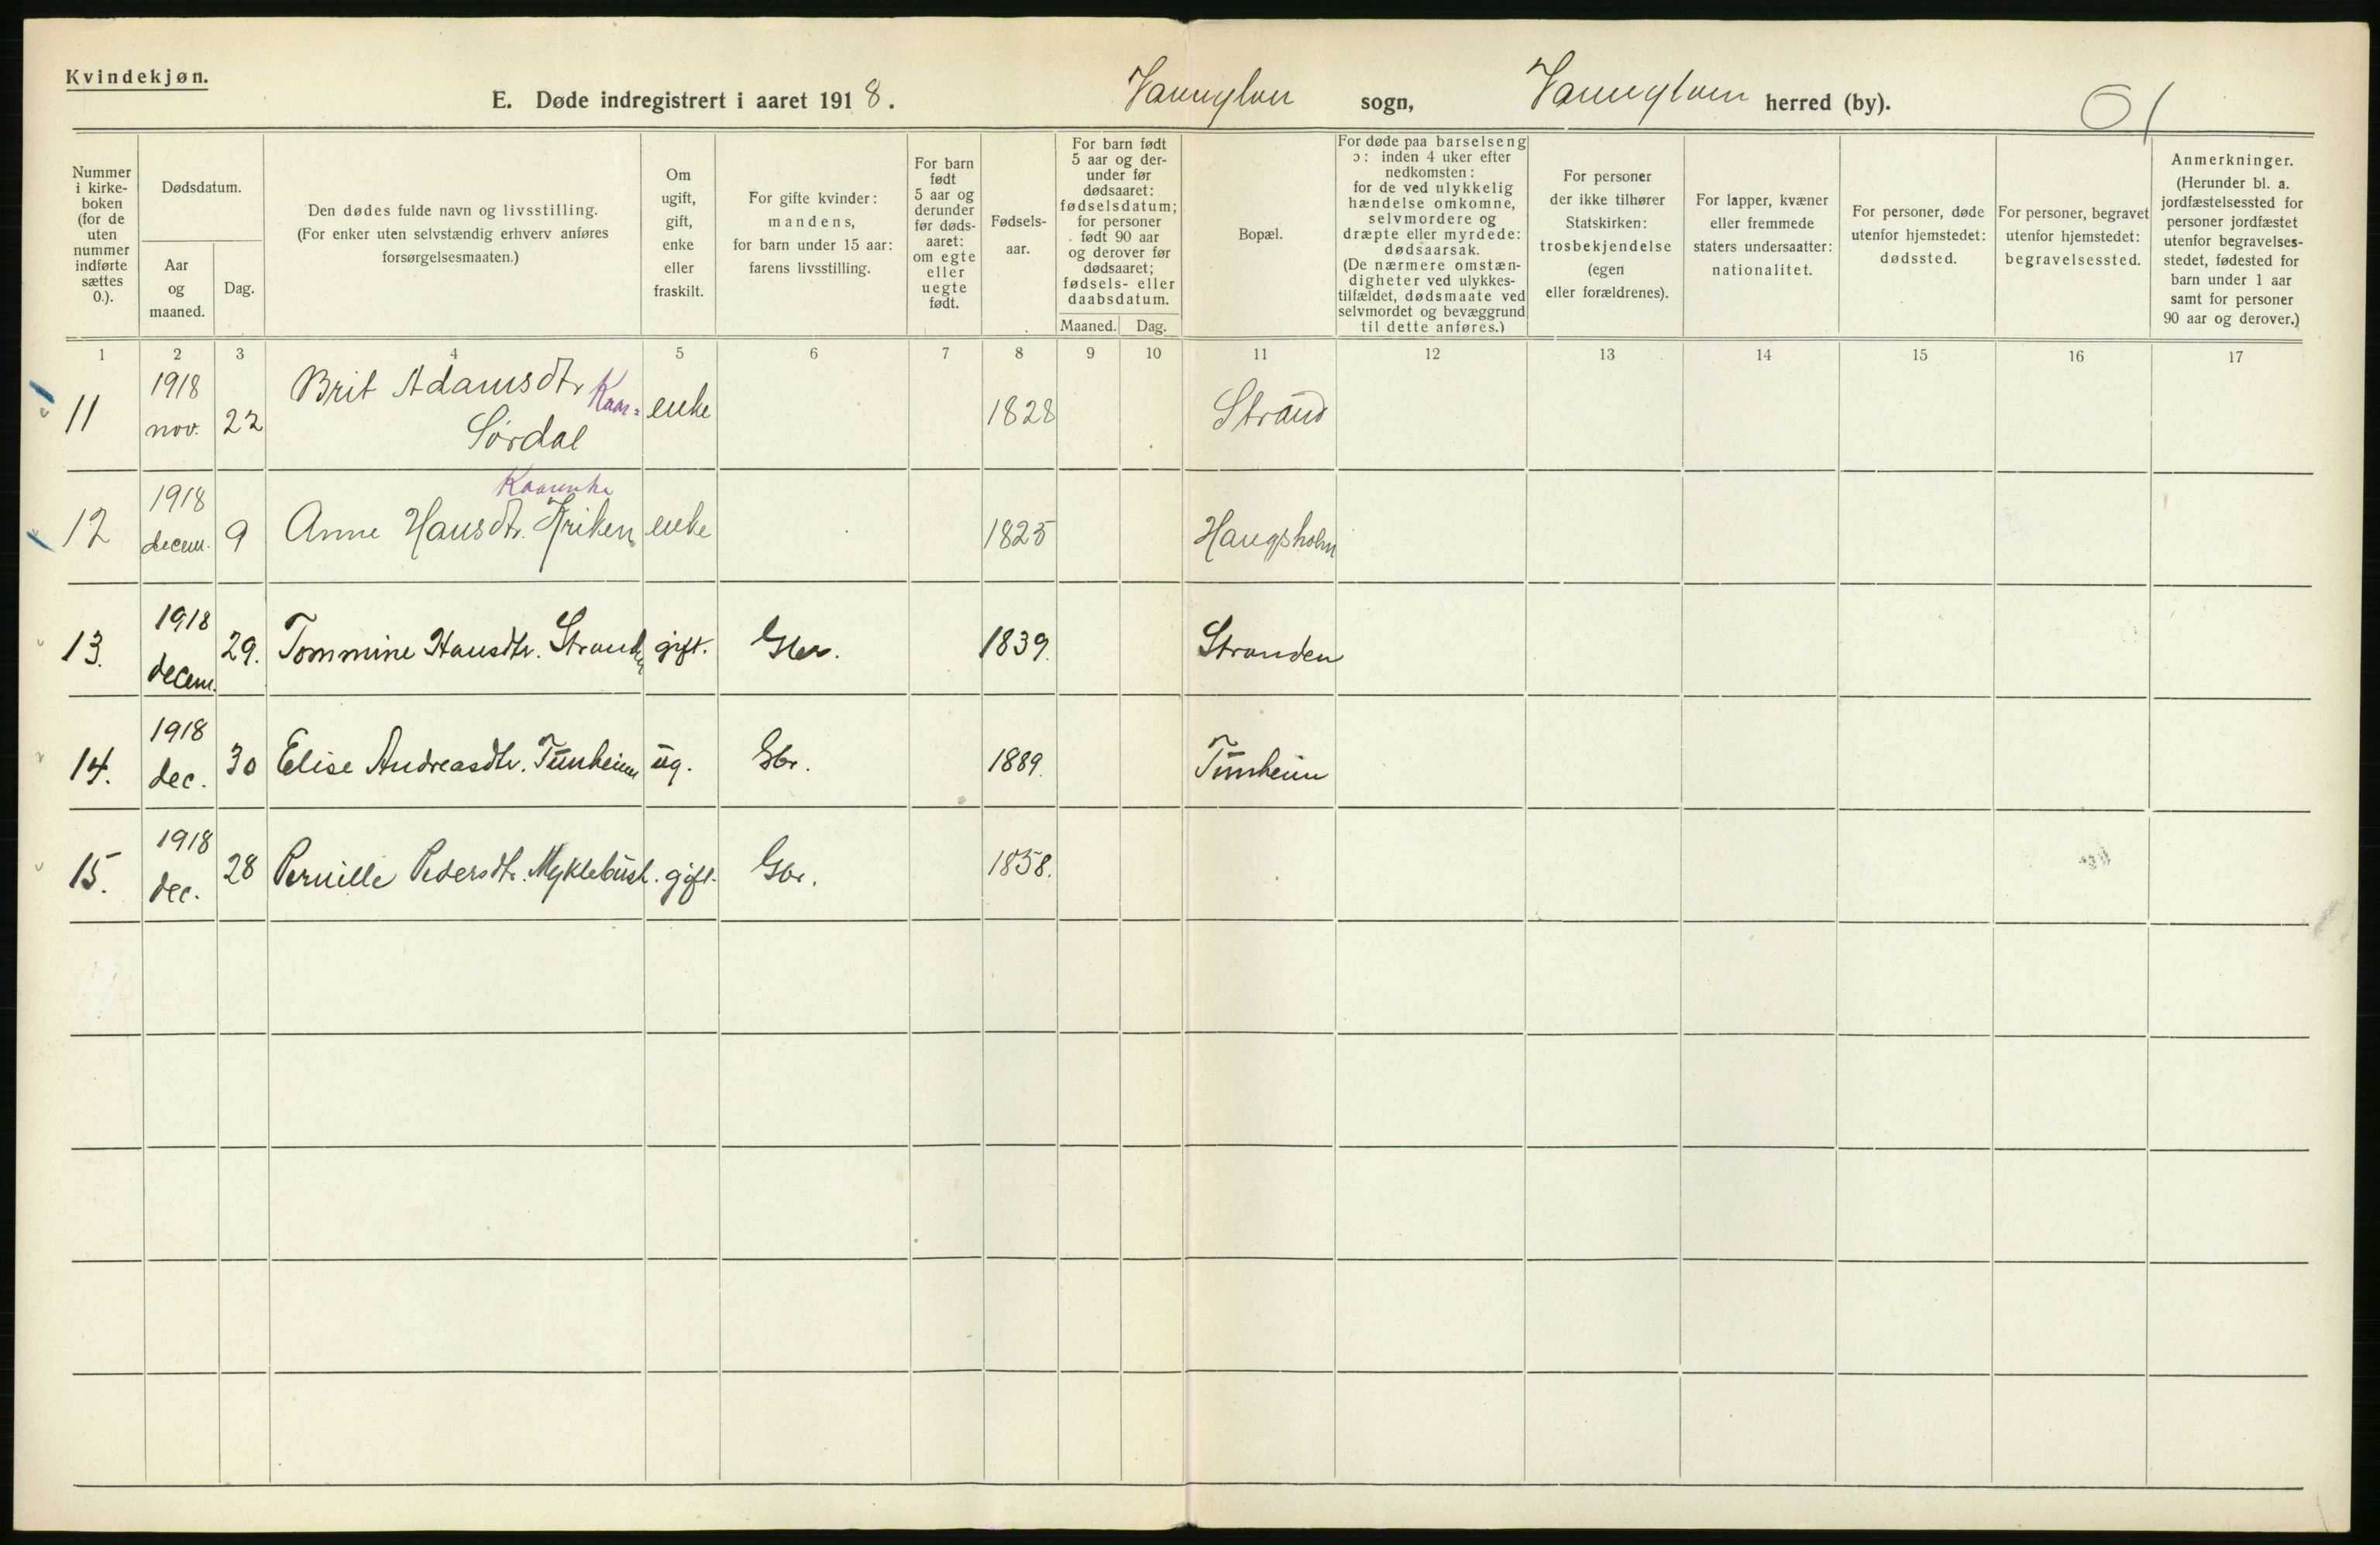 Kvindekjøn.
E. Døde indregistrert i aaret 1918.
Vannylven sogn, Vannylven herred (by).
Nummer i kirkeboken (for de uten nummer indførte sættes 0.).
Dødsdatum.
Aar og maaned.
Dag.
Den dødes fulde navn og livsstilling.
(For enker uten selvstændig erhverv anføres forsørgelsesmaaten.)
Om ugift, gift, enke eller fraskilt.
For gifte kvinder: mandens, for barn under 15 aar: farens livsstilling.
For barn født 5 aar og derunder før dødsaaret: om egte eller uegte født.
Fødselsaar.
For barn født 5 aar og derunder før dødsaaret: fødselsdatum; for personer født 90 aar og derover før dødsaaret; fødsels- eller daabsdatum.
Maaned.
Dag.
Bopæl.
For døde paa barselseng ɔ: inden 4 uker efter nedkomsten: for de ved ulykkelig hændelse omkomne, selvmordere og dræpte eller myrdede: dødsaarsak. (De nærmere omstændigheter ved ulykkestilfældet, dødsmaate ved selvmordet og bevæggrund til dette anføres.)
For personer der ikke tilhører Statskirken: trosbekjendelse (egen eller forældrenes).
For lapper, kvæner eller fremmede staters undersaatter: nationalitet.
For personer, døde utenfor hjemstedet: dødssted.
For personer, begravet utenfor hjemstedet: begravelsessted.
Anmerkninger. (Herunder bl. a. jordfæstelsessted for personer jordfæstet utenfor begravelsesstedet, fødested for barn under 1 aar samt for personer 90 aar og derover.)
1 2 3 4 5 6 7 8 9 10 11 12 13 14 15 16 17
11 1918 nov. 22 Brit Adamsdtr Kaar= Sørdal enke 1828 Strand
12 1918 decem. 9 Anne Hansdtr. Kriken Kaarenke enke 1825 Haugsholm
13. 1918 decem. 29. Tommine Hansdtr. Stranden gift. Gbr. 1839. Stranden
14. 1918 dec. 30 Elise Andreasdtr. Tunheim ug. Gbr. 1889. Tunheim
15. 1918 dec. 28 Pernille Pedersdtr. Myklebust. gift. Gbr. 1858.